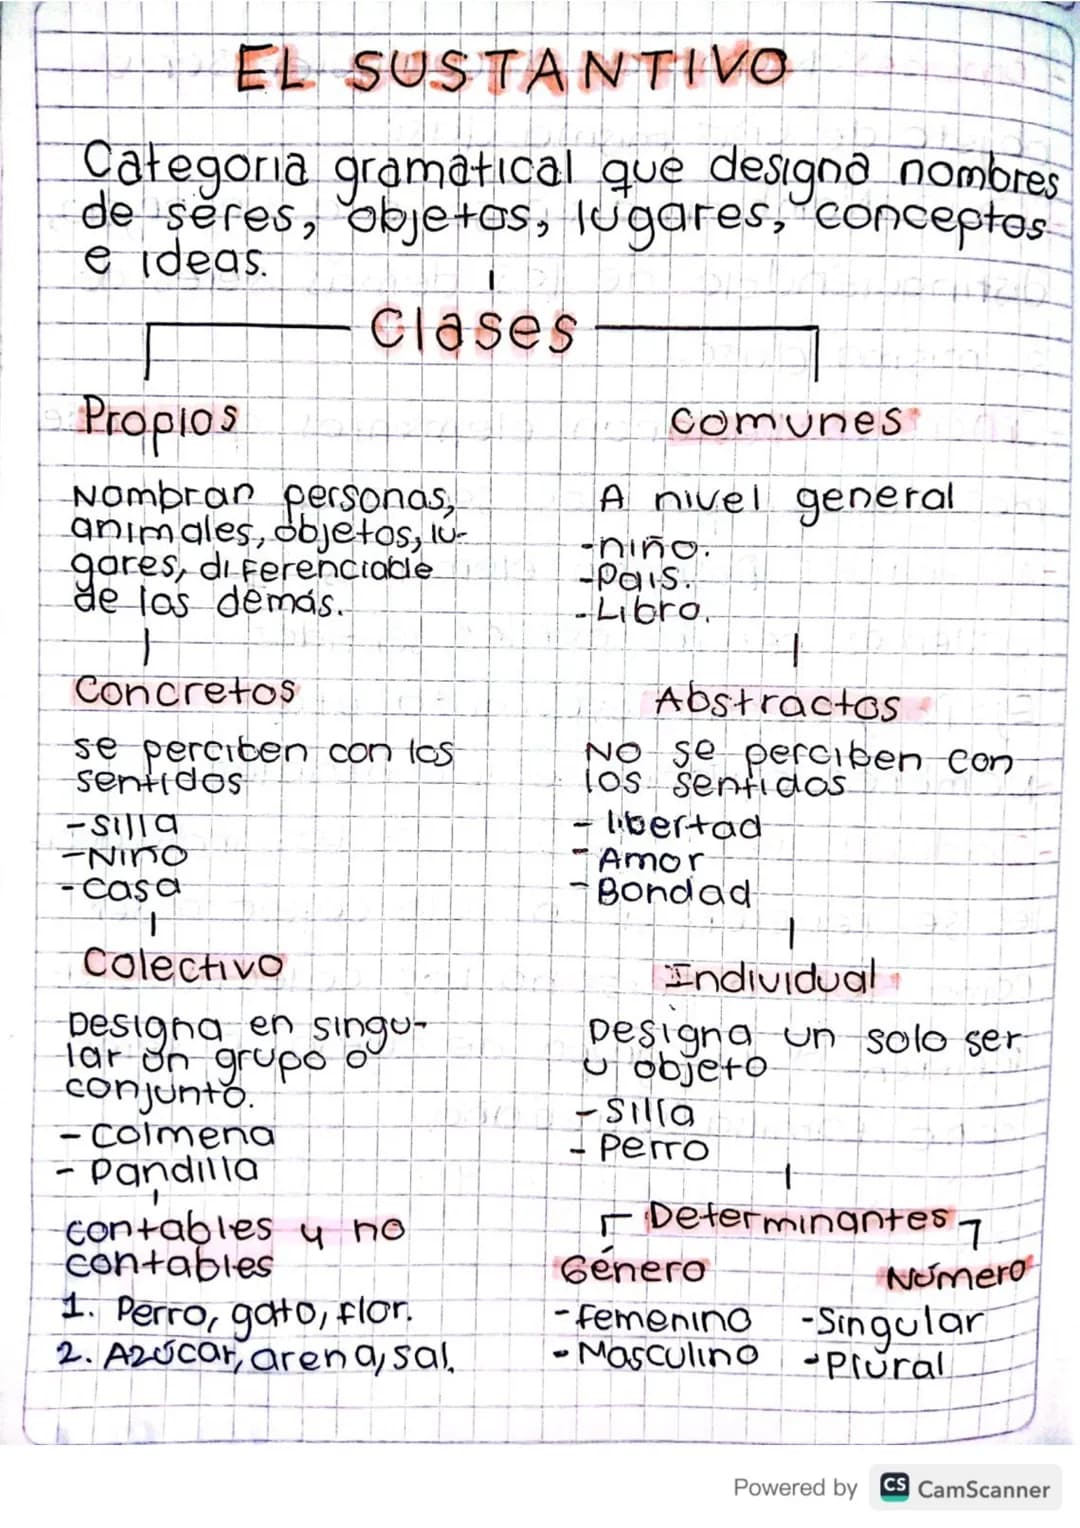 EL SUSTANTIVO
Categoria gramatical que designa nombres
de seres, objetos, lugares, conceptos
e ideas.
Clases
Propios
Nombran personas,
animales, objetos, lu-
gares, diferenciable
de los demás.
Comunes
A nivel general
-niño.
-Pais.
-Libro.
Concretos
se perciben con los
sentidos
-silla
-Niño
-casa
Abstractos
No se perciben con
los sentidos
- libertad
- Amor
- Bondad
Colectivo
Designa en singu-
lar un grupo o
conjunto.
- Colmena
- Pandilla
Individual
Designa un solo ser
u objeto
- Silla
- Perro
contables y no
contables
1. Perro, gato, flor.
2. Azúcar, arena, sal.
Determinantes
Género
- femenino
- Masculino
Número
-Singular
-Plural
Powered by CS CamScanner